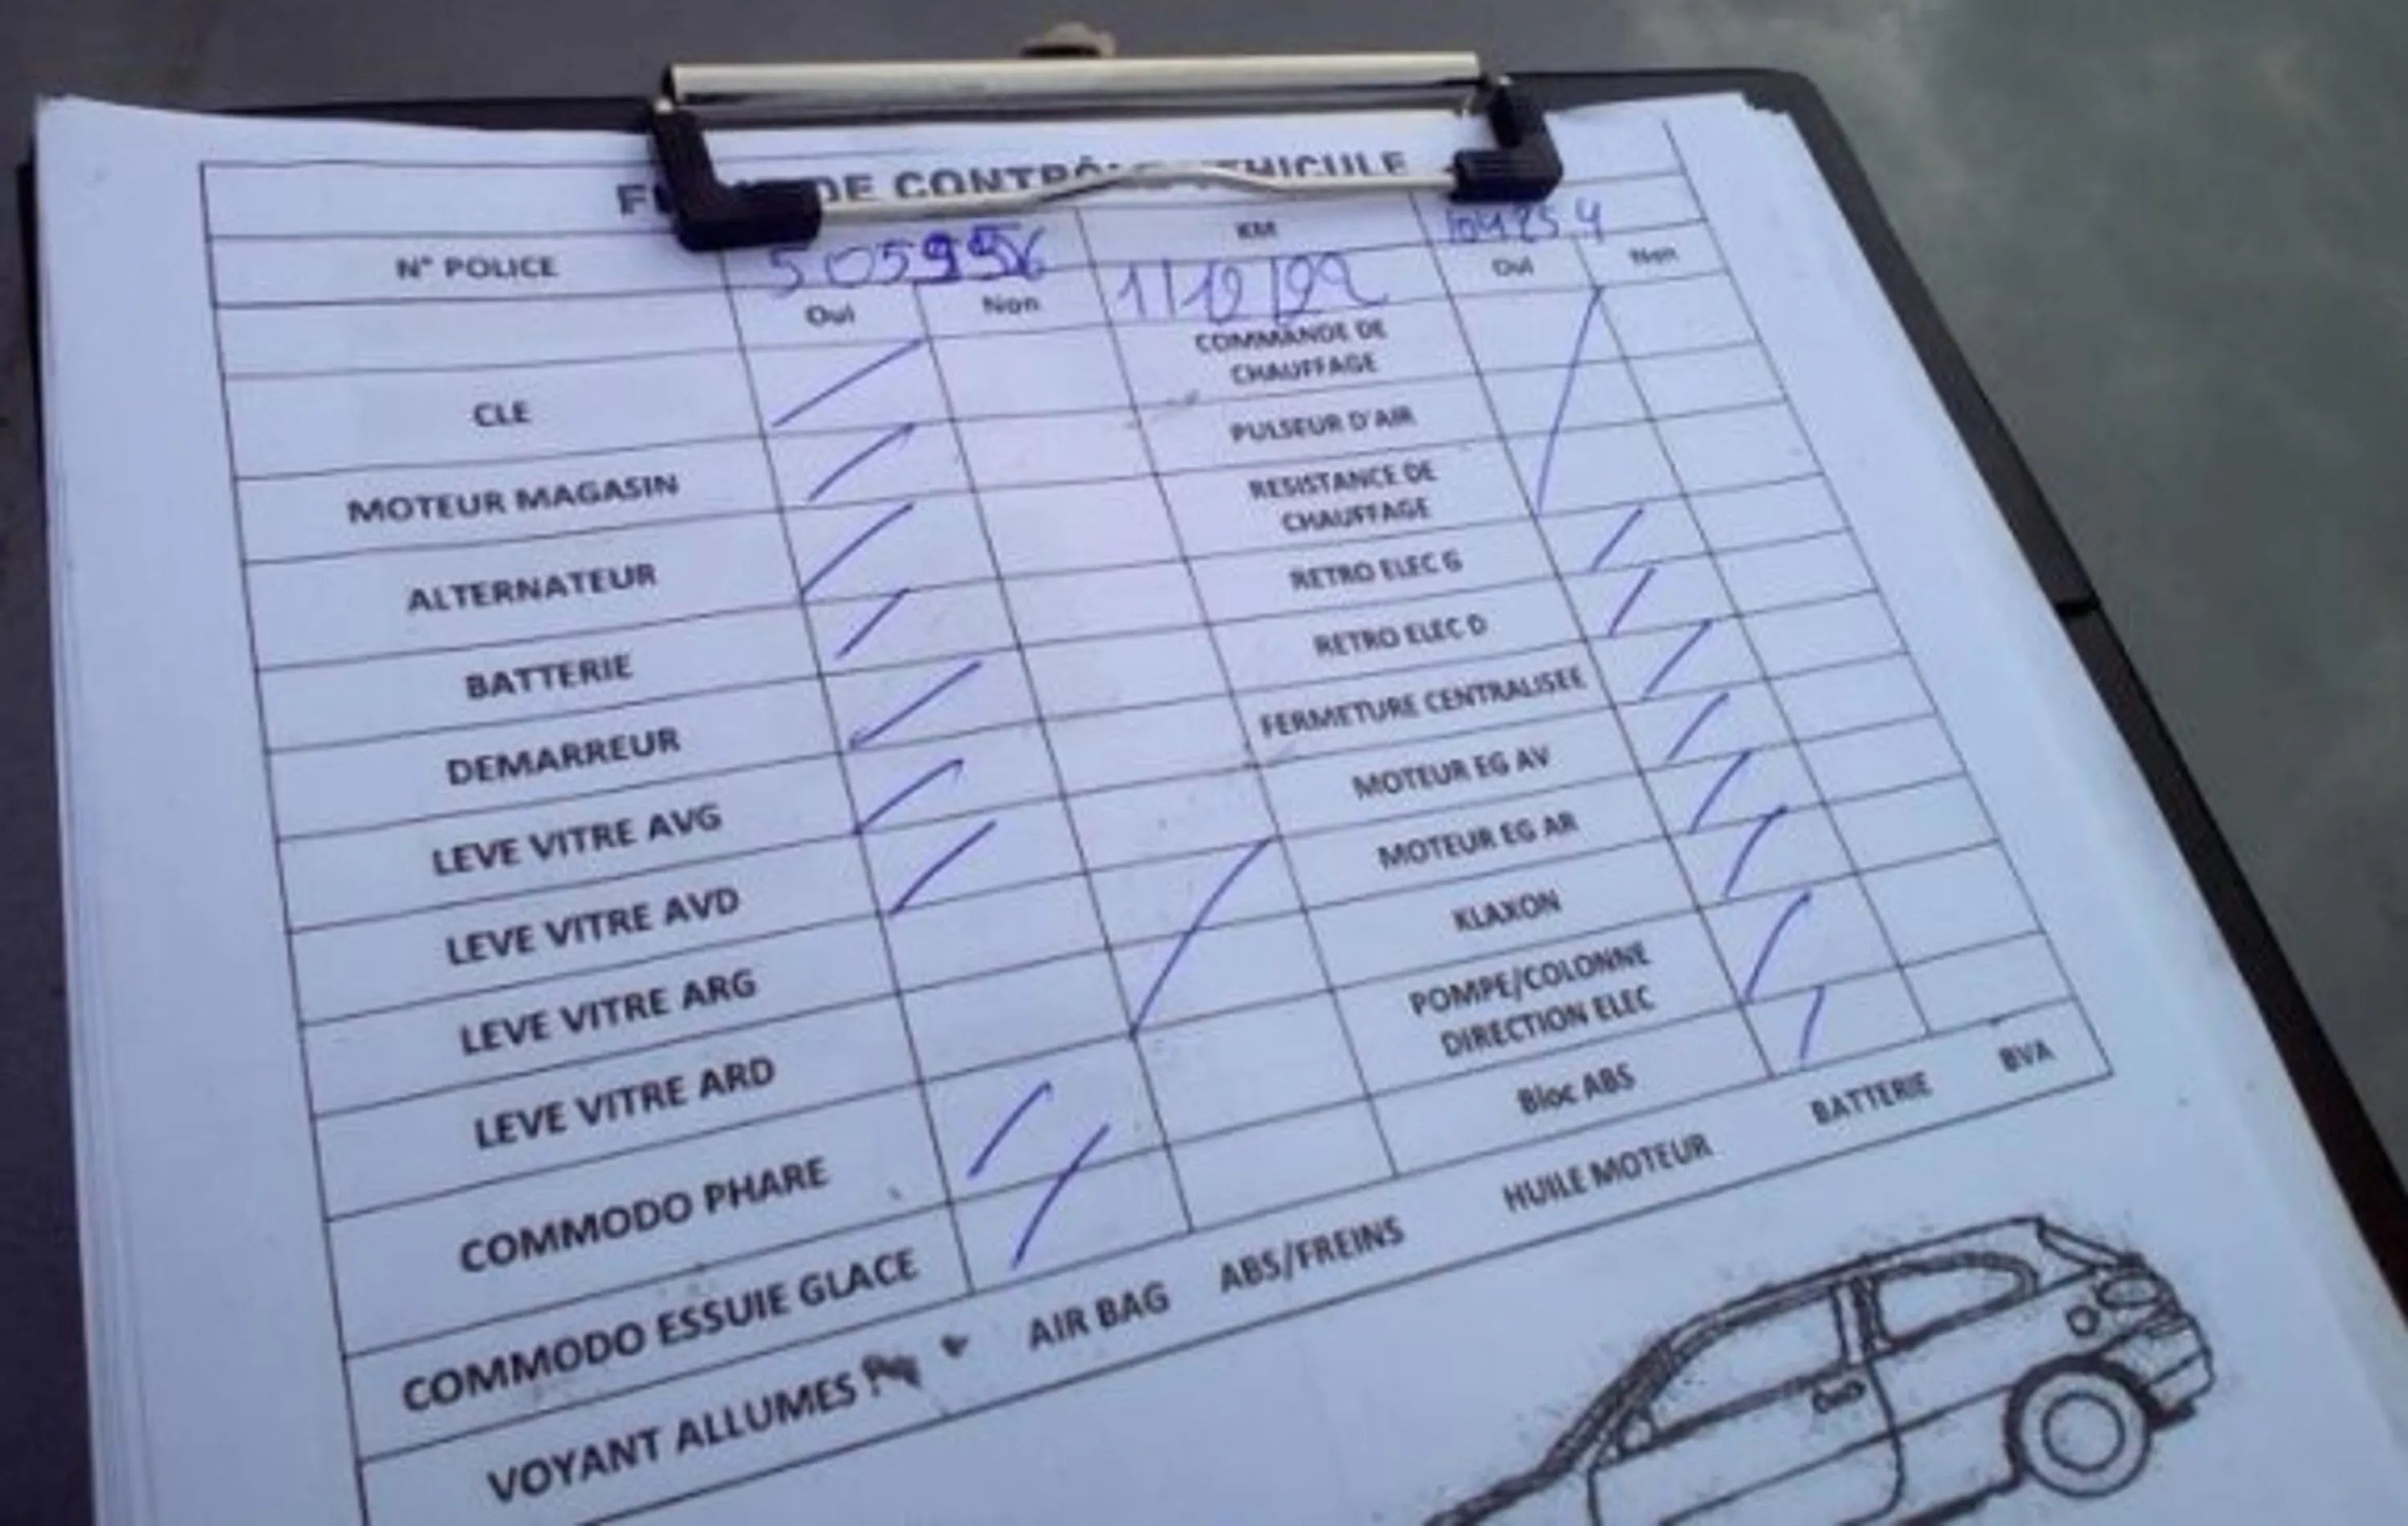 DE CONTRÔLE VÉHICULE
N° POLICE KM
Oui Non 1/12/22 Oui Non
CLE COMMANDE DE CHAUFFAGE
MOTEUR MAGASIN PULSEUR D'AIR
ALTERNATEUR RESISTANCE DE CHAUFFAGE
BATTERIE RETRO ELEC G
DEMARREUR RETRO ELEC D
LEVE VITRE AVG FERMETURE CENTRALISEE
LEVE VITRE AVD MOTEUR EG AV
LEVE VITRE ARG MOTEUR EG AR
LEVE VITRE ARD KLAXON
COMMODO PHARE POMPE/COLONNE DIRECTION ELEC
COMMODO ESSUIE GLACE Bloc ABS
VOYANT ALLUMES AIR BAG ABS/FREINS HUILE MOTEUR BATTERIE BVA